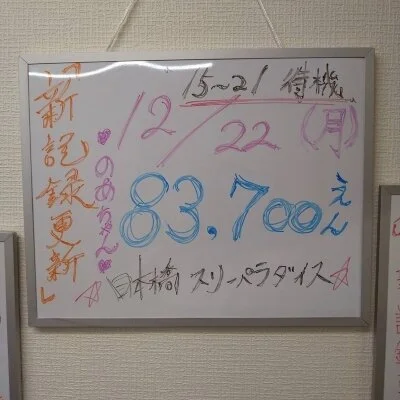 『新記録更新』
15~21 待機
12/22(月)
♡のあちゃん♡
83,700えん
☆日本橋 スリーパラダイス☆